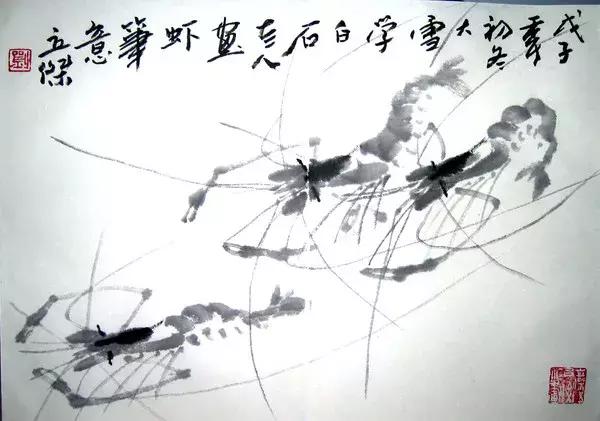 戊子秊初冬大雪学白石老人畫虾筆意
立傑